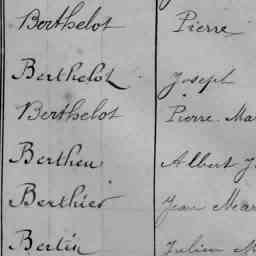 Berthelot Pierre
Berthelot Joseph
Berthelot Pierre Ma
Bertheu Albert J
Berthier Jean Mar
Bertin Julien M